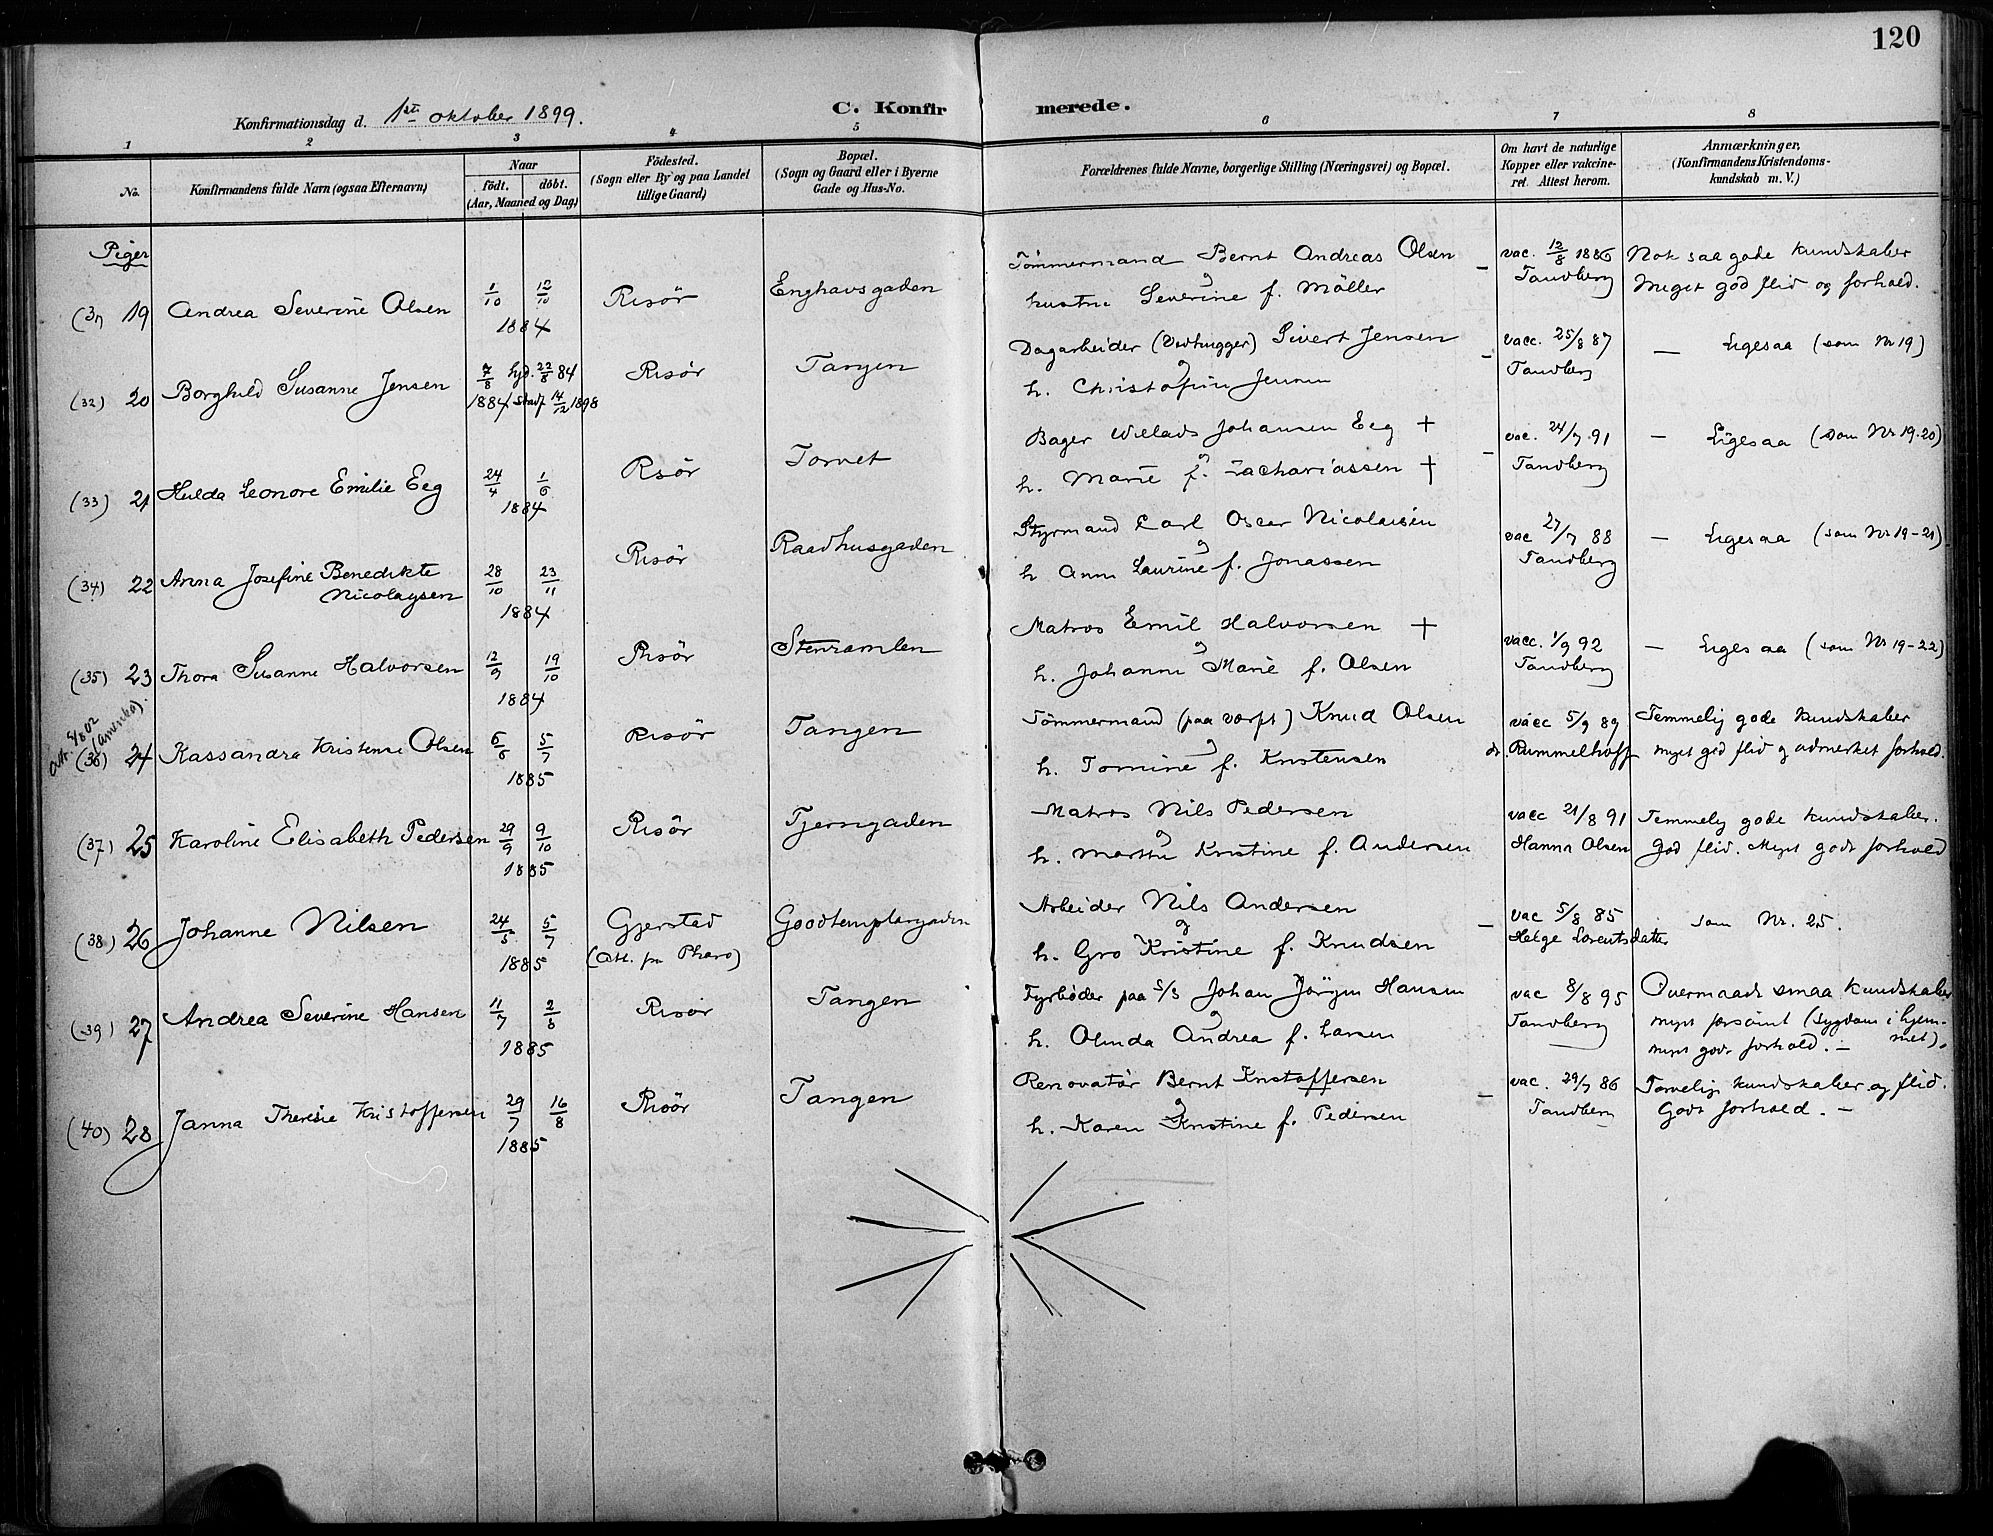 120
Konfirmationsdag d. 1ste oktober 1899.
C. Konfirmerede.
1 2 3 4 5 6 7 8
No.
Konfirmandens fulde Navn (ogsaa Efternavn)
Naar
födt. döbt.
(Aar, Maaned og Dag)
Födested.
(Sogn eller By og paa Landet
tillige Gaard)
Bopæl.
(Sogn og Gaard eller i Byerne
Gade og Hus-No.
Forældrenes fulde Navne, borgerlige Stilling (Næringsvei) og Bopæl.
Om havt de naturlige
Kopper eller vakcine-
ret. Attest herom.
Anmærkninger,
(Konfirmandens Kristendoms-
kundskab m. V.)
Piger
(31) 19 Andrea Severine Olsen 1/10 12/10 1884 Risör Enghavsgaden
Tömmermand Bernt Andreas Olsen
og
hustru Severine f. Möller
vac. 12/8 1886
Tandberg
Nok saa gode kundskaber
Meget god flid og forhold.
(32) 20 Borghild Susanne Jensen 7/8 1884 hjd. 22/8 84 stadf. 14/12 1898 Risör Tangen
Dagarbeider (Vedhugger) Sivert Jensen
og
h. Christofine Jensen
vacc. 25/8 87
Tandberg
— Ligesaa (som Nr 19)
(33) 21 Hulda Leonore Emilie Eeg 24/4 1/6 1884 Risör Torvet
Bager Willads Johansen Eeg +
og
h. Marie f. Zachariassen +
vac. 24/7 91
Tandberg
— Ligesaa (som Nr 19-20)
(34) 22 Anna Josefine Benedikte
Nicolaysen 28/10 23/11 1884 Risör Raadhusgaden
Styrmand Carl Oscar Nicolaisen
og
h Anne Laurine f. Jonassen
vac 27/7 88
Tandberg
— Ligesaa (som Nr 19-21)
(35) 23 Thora Susanne Halvorsen 12/9 19/10 1884 Risör Stenramlen
Matros Emil Halvorsen +
og
h. Johanne Marie f. Olsen
vacc. 1/9 92
Tandberg
— Ligesaa (som Nr 19-22)
att. 4/8 02
(Amerika).
(36) 24 Kassandra Kristense Olsen 6/6 5/7 1885 Risör Tangen
Tömmermand (paa værft) Knud Olsen
og
h. Tomine f. Kristensen
vacc 5/9 89
dr. Rummelhoff
Temmelig gode kundskaber
meget god flid og udmerket forhold.
(37) 25 Karoline Elisabeth Pedersen 29/9 9/10 1885 Risör Tjerngaden
Matros Nils Pedersen
og
h. Marthe Kristine f. Andersen
vacc 21/8 91
Hanna Olsen
Temmelig gode kundskaber.
God flid. Meget godt forhold
(38) 26 Johanne Nilsen 24/5 5/7 1885 Gjerstad
(Att. fra Pharo) Goodtemplergaden
Arbeider Nils Andersen
og
h. Gro Kristine f. Knudsen
vac 5/8 85
Helge Lorentsdatter
som Nr. 25.
(39) 27 Andrea Severine Hansen 11/7 2/8 1885 Risör Tangen
Fyrböder paa S/S Johan Jörgen Hansen
og
h. Olinda Andrea f. Larsen
vac 8/8 95
Tandberg
Overmaade smaa kundskaber
meget forsömt (sygdom i hjem-
met).
meget godt forhold. —
(40) 28 Janna Theresie Kristoffersen 29/7 16/8 1885 Risör Tangen
Renovatör Bernt Kristoffersen
og
h. Karen Kristine f. Pedersen
vac. 29/7 86
Tandberg
Tarvelige kundskaber og flid.
Godt forhold. —